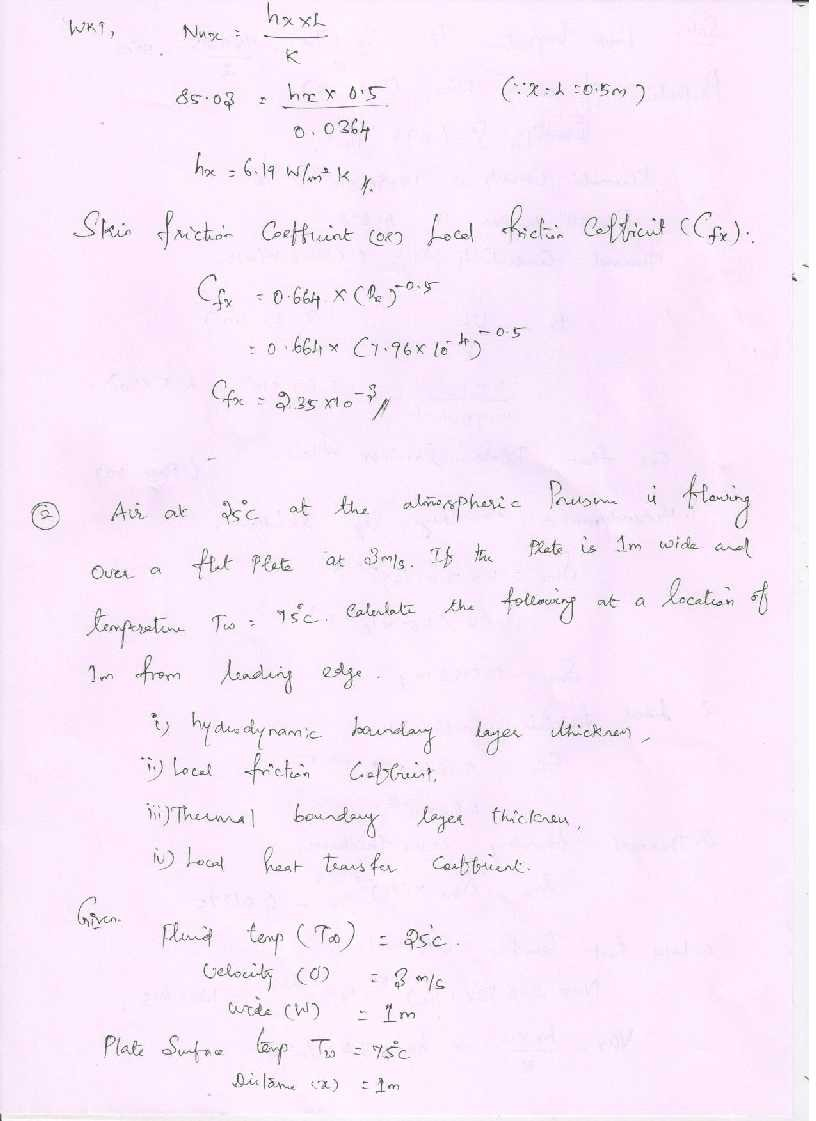 WKT, Nux = hx x L / K
85.03 = hx x 0.5 / 0.0364 (∵ x = L = 0.5m)
hx = 6.19 W/m² K //.
Skin friction Coefficient (or) Local friction Coefficient (Cfx).
Cfx = 0.664 x (Re)^-0.5
= 0.664 x (7.96 x 10^-4)^-0.5
Cfx = 2.35 x10^-3 //
② Air at 25°C at the atmospheric Pressure is flowing
Over a flat Plate at 3m/s. If the Plate is 1m wide and
temperature Tw = 75°C. Calculate the following at a location of
1m from leading edge.
i) hydrodynamic boundary layer thickness,
ii) Local friction Coefficient,
iii) Thermal boundary layer thickness,
iv) Local heat transfer Coefficient.
Given.
Fluid temp (T∞) = 25°C.
Velocity (U) = 3 m/s
wide (W) = 1m
Plate Surface temp Tw = 75°C
Distance (x) = 1m